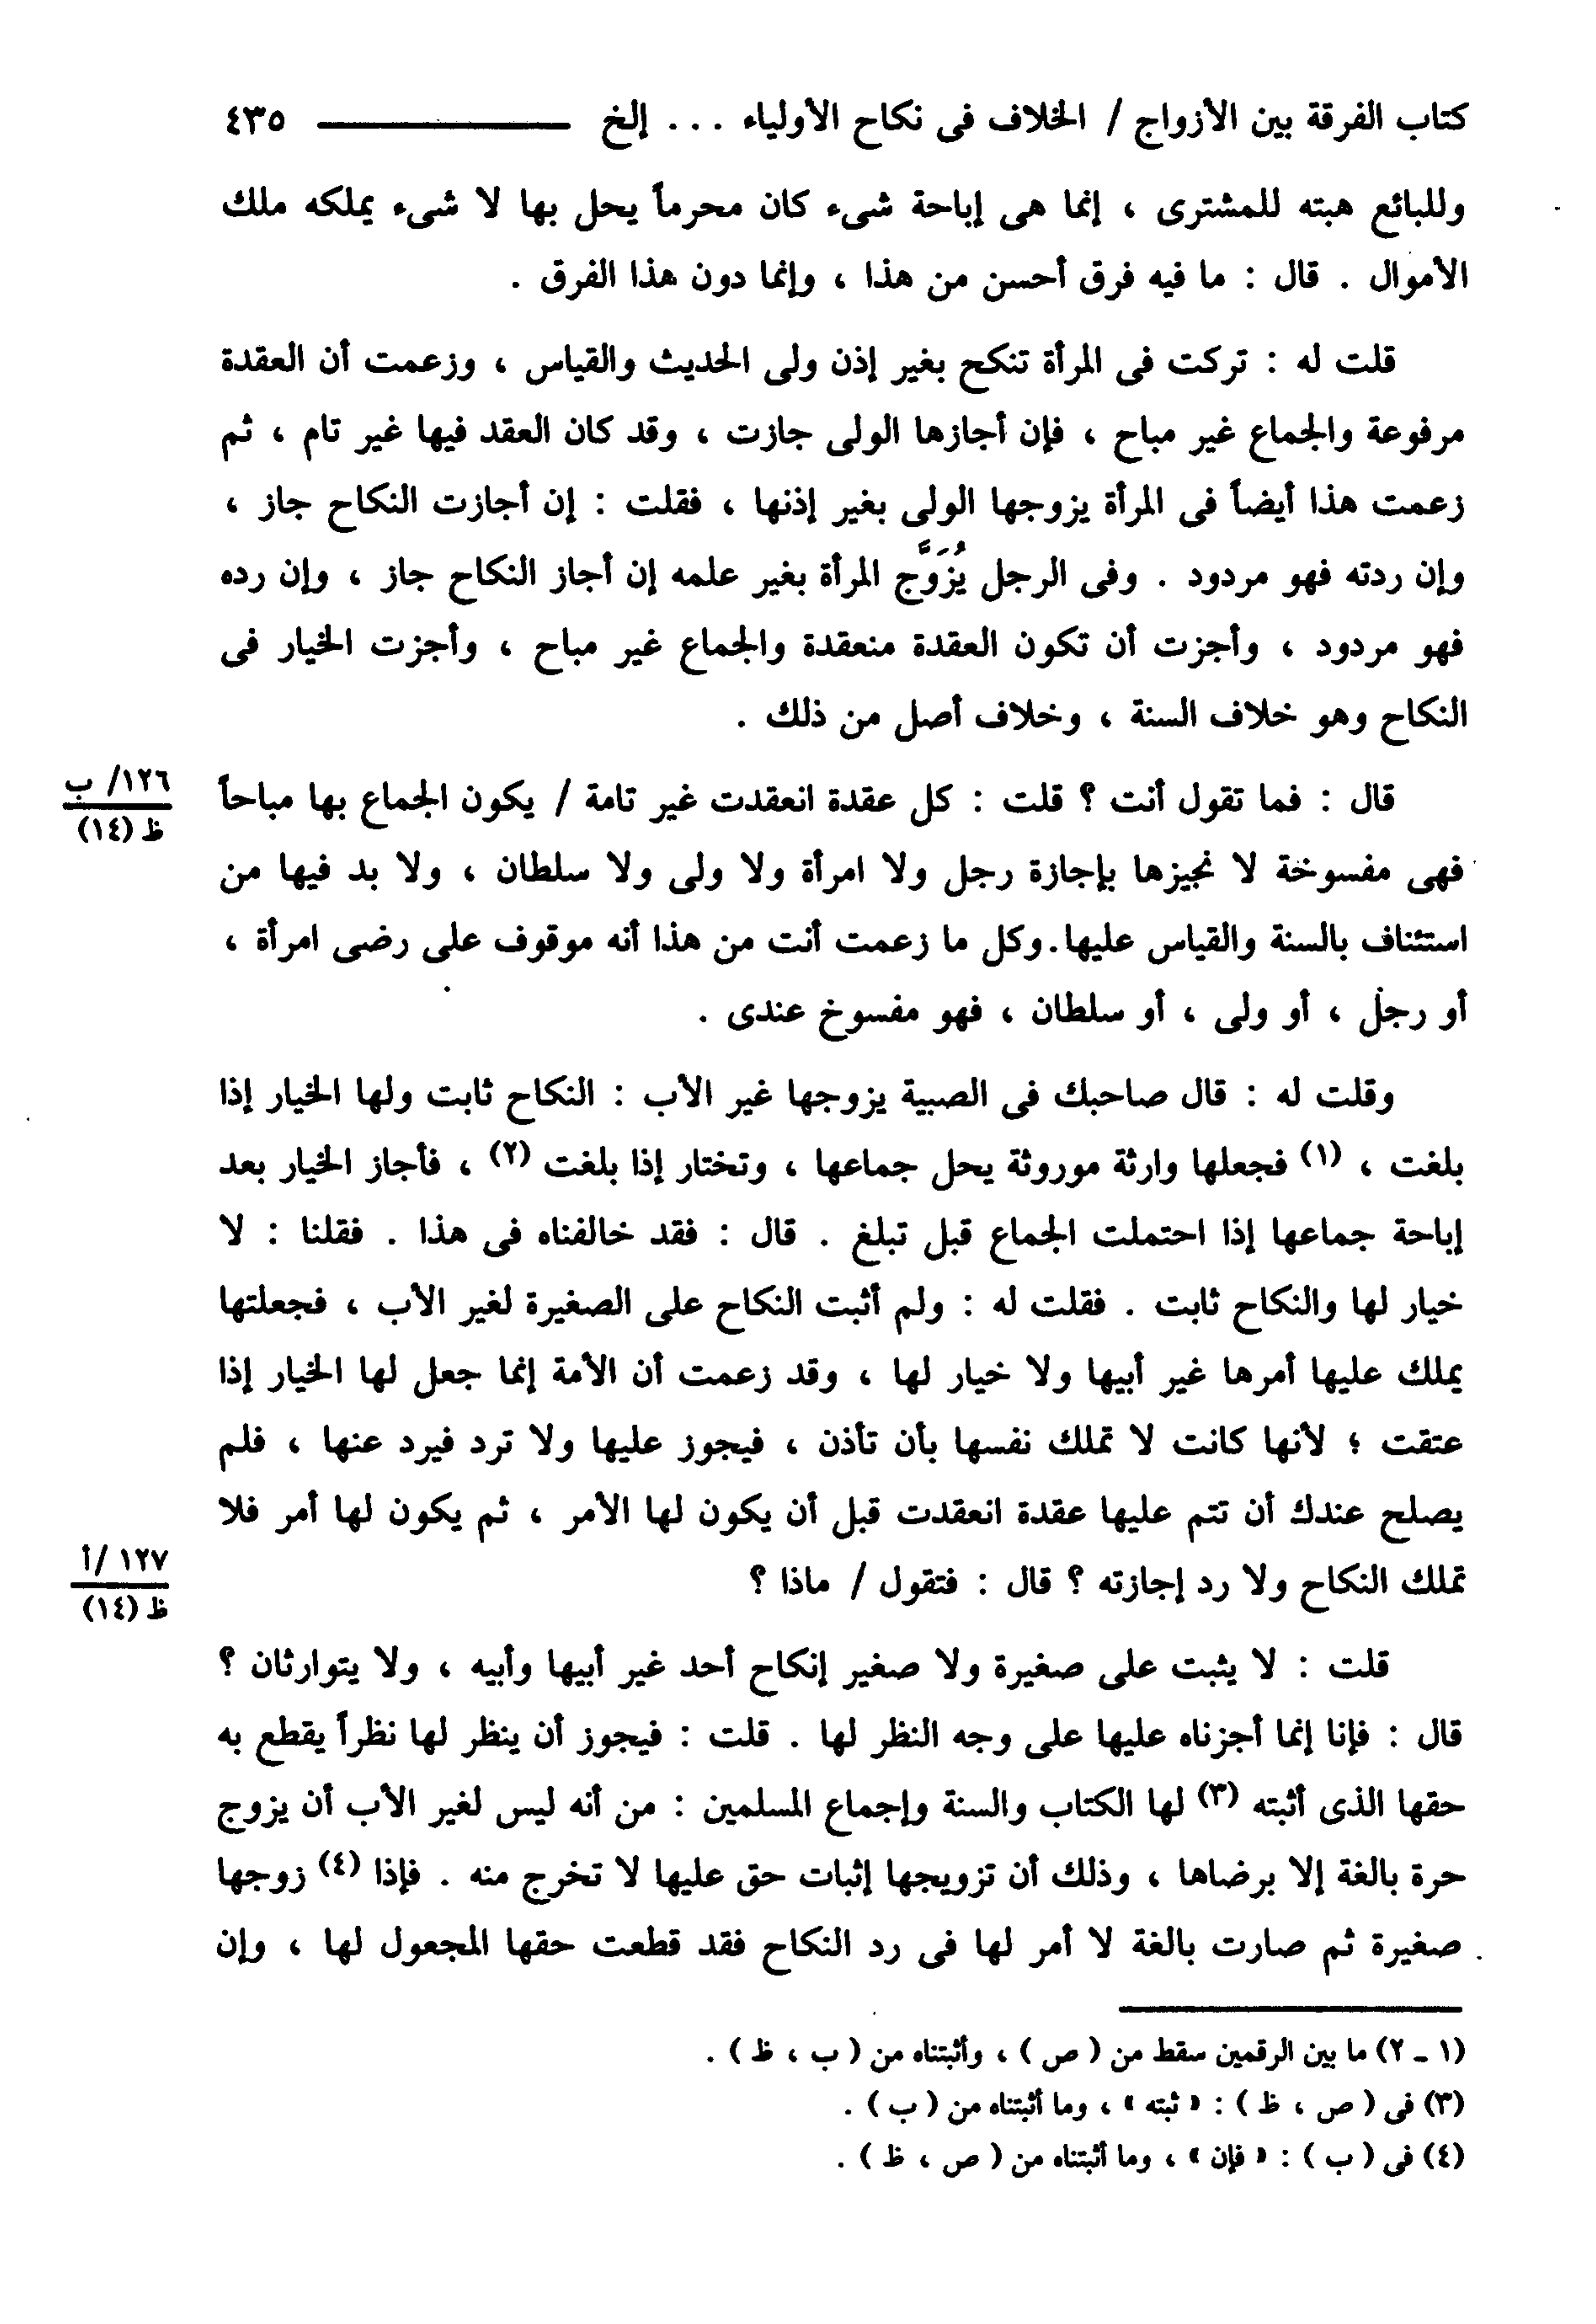 كتاب الفرقة بين الأزواج / الخلاف فى نكاح الأولياء ... إلخ ــــــــــ ٤٣٥
وللبائع هبته للمشترى ، إنما هى إباحة شىء كان محرماً يحل بها لا شىء يملكه ملك
الأموال . قال : ما فيه فرق أحسن من هذا ، وإنما دون هذا الفرق .
قلت له : تركت فى المرأة تنكح بغير إذن ولى الحديث والقياس ، وزعمت أن العقدة
مرفوعة والجماع غير مباح ، فإن أجازها الولى جازت ، وقد كان العقد فيها غير تام ، ثم
زعمت هذا أيضاً فى المرأة يزوجها الولى بغير إذنها ، فقلت : إن أجازت النكاح جاز ،
وإن ردته فهو مردود . وفى الرجل يُزَوَّج المرأة بغير علمه إن أجاز النكاح جاز ، وإن رده
فهو مردود ، وأجزت أن تكون العقدة منعقدة والجماع غير مباح ، وأجزت الخيار فى
النكاح وهو خلاف السنة ، وخلاف أصل من ذلك .
قال : فما تقول أنت ؟ قلت : كل عقدة انعقدت غير تامة / يكون الجماع بها مباحاً
١٢٦/ ب
ظ (١٤)
فهى مفسوخة لا نجيزها بإجازة رجل ولا امرأة ولا ولى ولا سلطان ، ولا بد فيها من
استئناف بالسنة والقياس عليها.وكل ما زعمت أنت من هذا أنه موقوف على رضى امرأة ،
أو رجل ، أو ولى ، أو سلطان ، فهو مفسوخ عندى .
وقلت له : قال صاحبك فى الصبية يزوجها غير الأب : النكاح ثابت ولها الخيار إذا
بلغت ، (١) فجعلها وارثة موروثة يحل جماعها ، وتختار إذا بلغت (٢) ، فأجاز الخيار بعد
إباحة جماعها إذا احتملت الجماع قبل تبلغ . قال : فقد خالفناه فى هذا . فقلنا : لا
خيار لها والنكاح ثابت . فقلت له : ولم أثبت النكاح على الصغيرة لغير الأب ، فجعلتها
يملك عليها أمرها غير أبيها ولا خيار لها ، وقد زعمت أن الأمة إنما جعل لها الخيار إذا
عتقت ؛ لأنها كانت لا تملك نفسها بأن تأذن ، فيجوز عليها ولا ترد فيرد عنها ، فلم
يصلح عندك أن تتم عليها عقدة انعقدت قبل أن يكون لها الأمر ، ثم يكون لها أمر فلا
تملك النكاح ولا رد إجازته ؟ قال : فتقول / ماذا ؟
١٢٧ /أ
ظ (١٤)
قلت : لا يثبت على صغيرة ولا صغير إنكاح أحد غير أبيها وأبيه ، ولا يتوارثان ؟
قال : فإنا إنما أجزناه عليها على وجه النظر لها . قلت : فيجوز أن ينظر لها نظراً يقطع به
حقها الذى أثبته (٣) لها الكتاب والسنة وإجماع المسلمين : من أنه ليس لغير الأب أن يزوج
حرة بالغة إلا برضاها ، وذلك أن تزويجها إثبات حق عليها لا تخرج منه . فإذا (٤) زوجها
صغيرة ثم صارت بالغة لا أمر لها فى رد النكاح فقد قطعت حقها المجعول لها ، وإن
(١ ـ ٢) ما بين الرقمين سقط من ( ص ) ، وأثبتناه من ( ب ، ظ ) .
(٣) فى ( ص ، ظ ) : « ثبته » ، وما أثبتناه من ( ب ) .
(٤) فى ( ب ) : « فإن » ، وما أثبتناه من ( ص ، ظ ) .